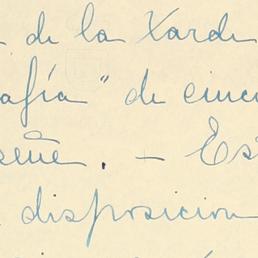 de la Xarde
afía" de cinc
señe. – Es
disposicion